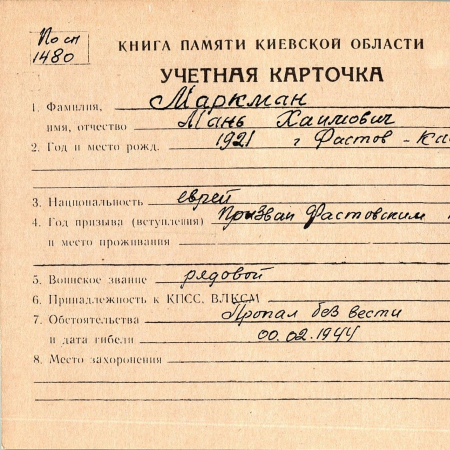 По сп
1480
КНИГА ПАМЯТИ КИЕВСКОЙ ОБЛАСТИ
УЧЕТНАЯ КАРТОЧКА
1. Фамилия, Маркман
имя, отчество Мань Хаимович
2. Год и место рожд. 1921 г Фастов -
3. Национальность еврей
4. Год призыва (вступления) Призван Фастовским
и место проживания
5. Воинское звание рядовой
6. Принадлежность к КПСС, ВЛКСМ
7. Обстоятельства Пропал без вести
и дата гибели 00.02.1944
8. Место захоронения